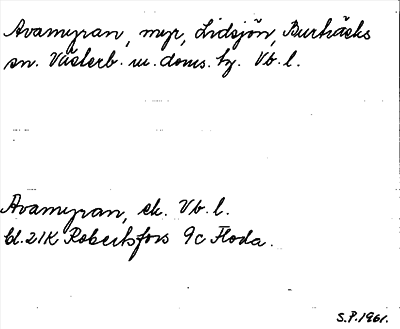 Avamyran, myr, Lidsjön, Burträsks
sn. Västerb. m. doms. hg. Vb. l.
Avamyran, ek. Vb. l.
bl. 21K Robertsfors 9c Floda.
S.P. 1961.